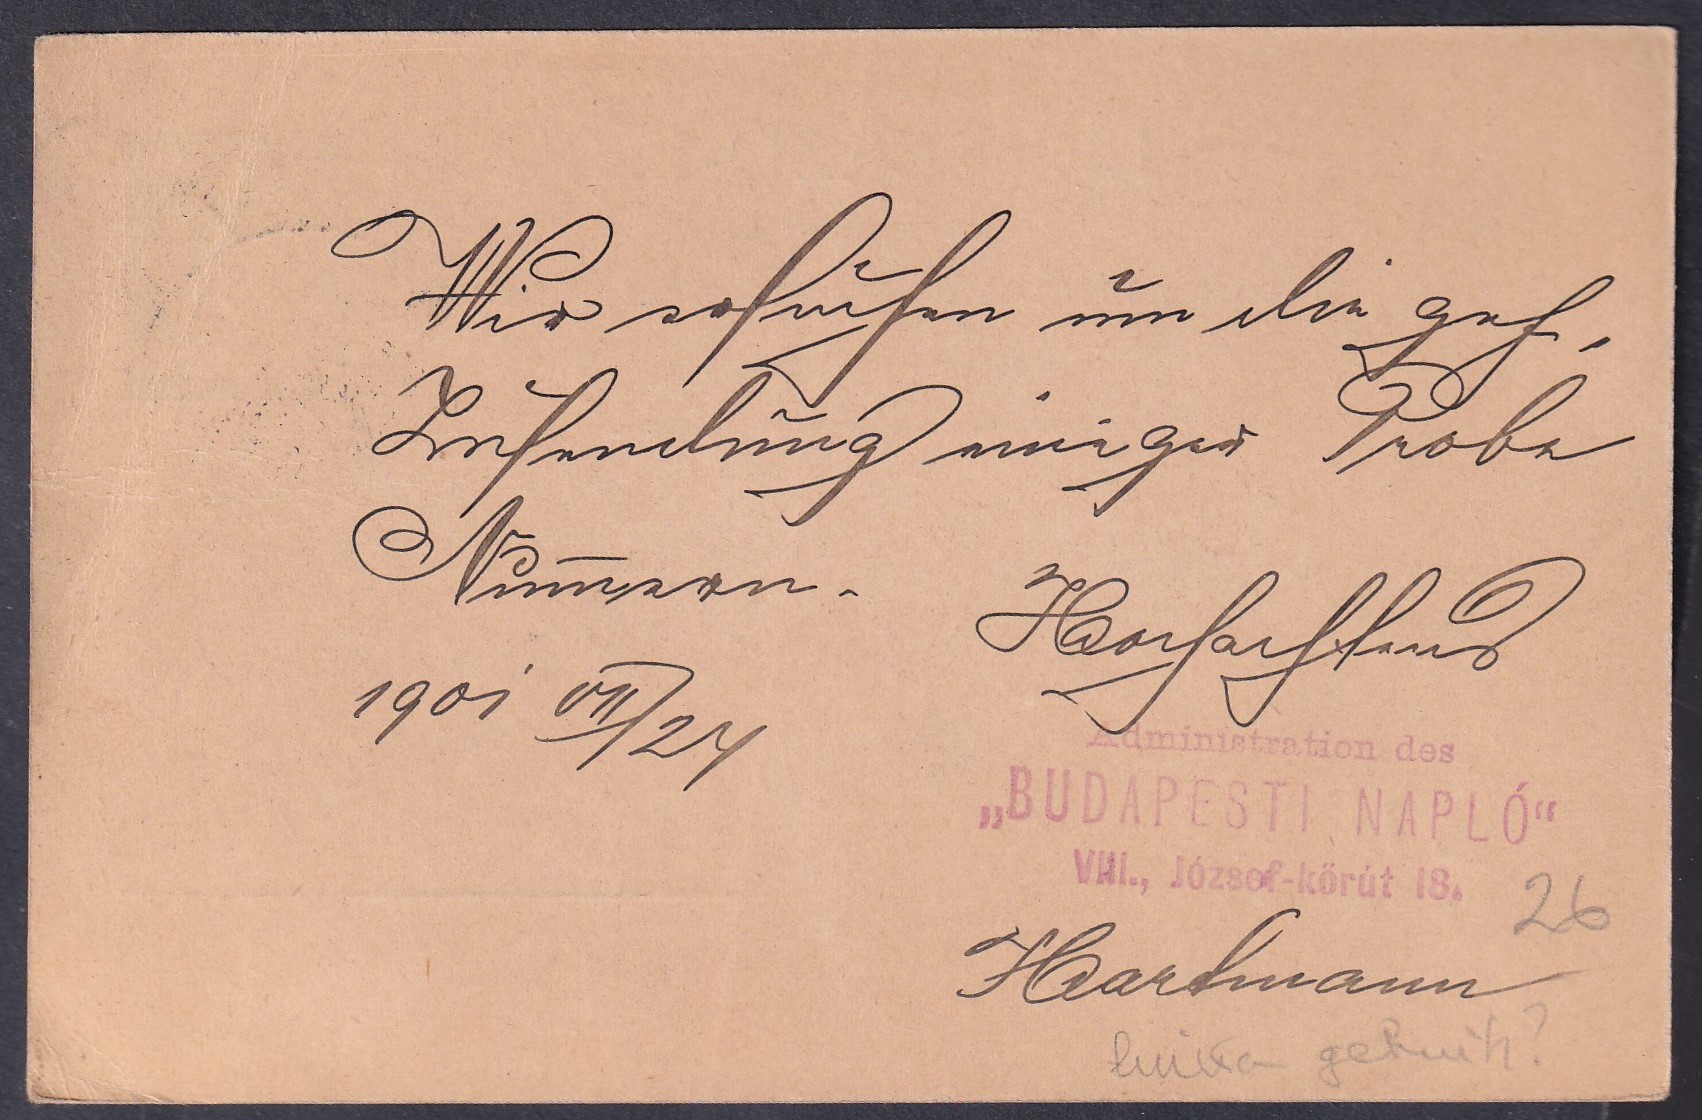 Wir ersuchen um die gef.
Zusendung einiger Probe
Nummern.
Hochachtend
1901 VII/24
Administration des
„BUDAPESTI NAPLÓ“
VIII., József-körút 18.
26
Hartmann